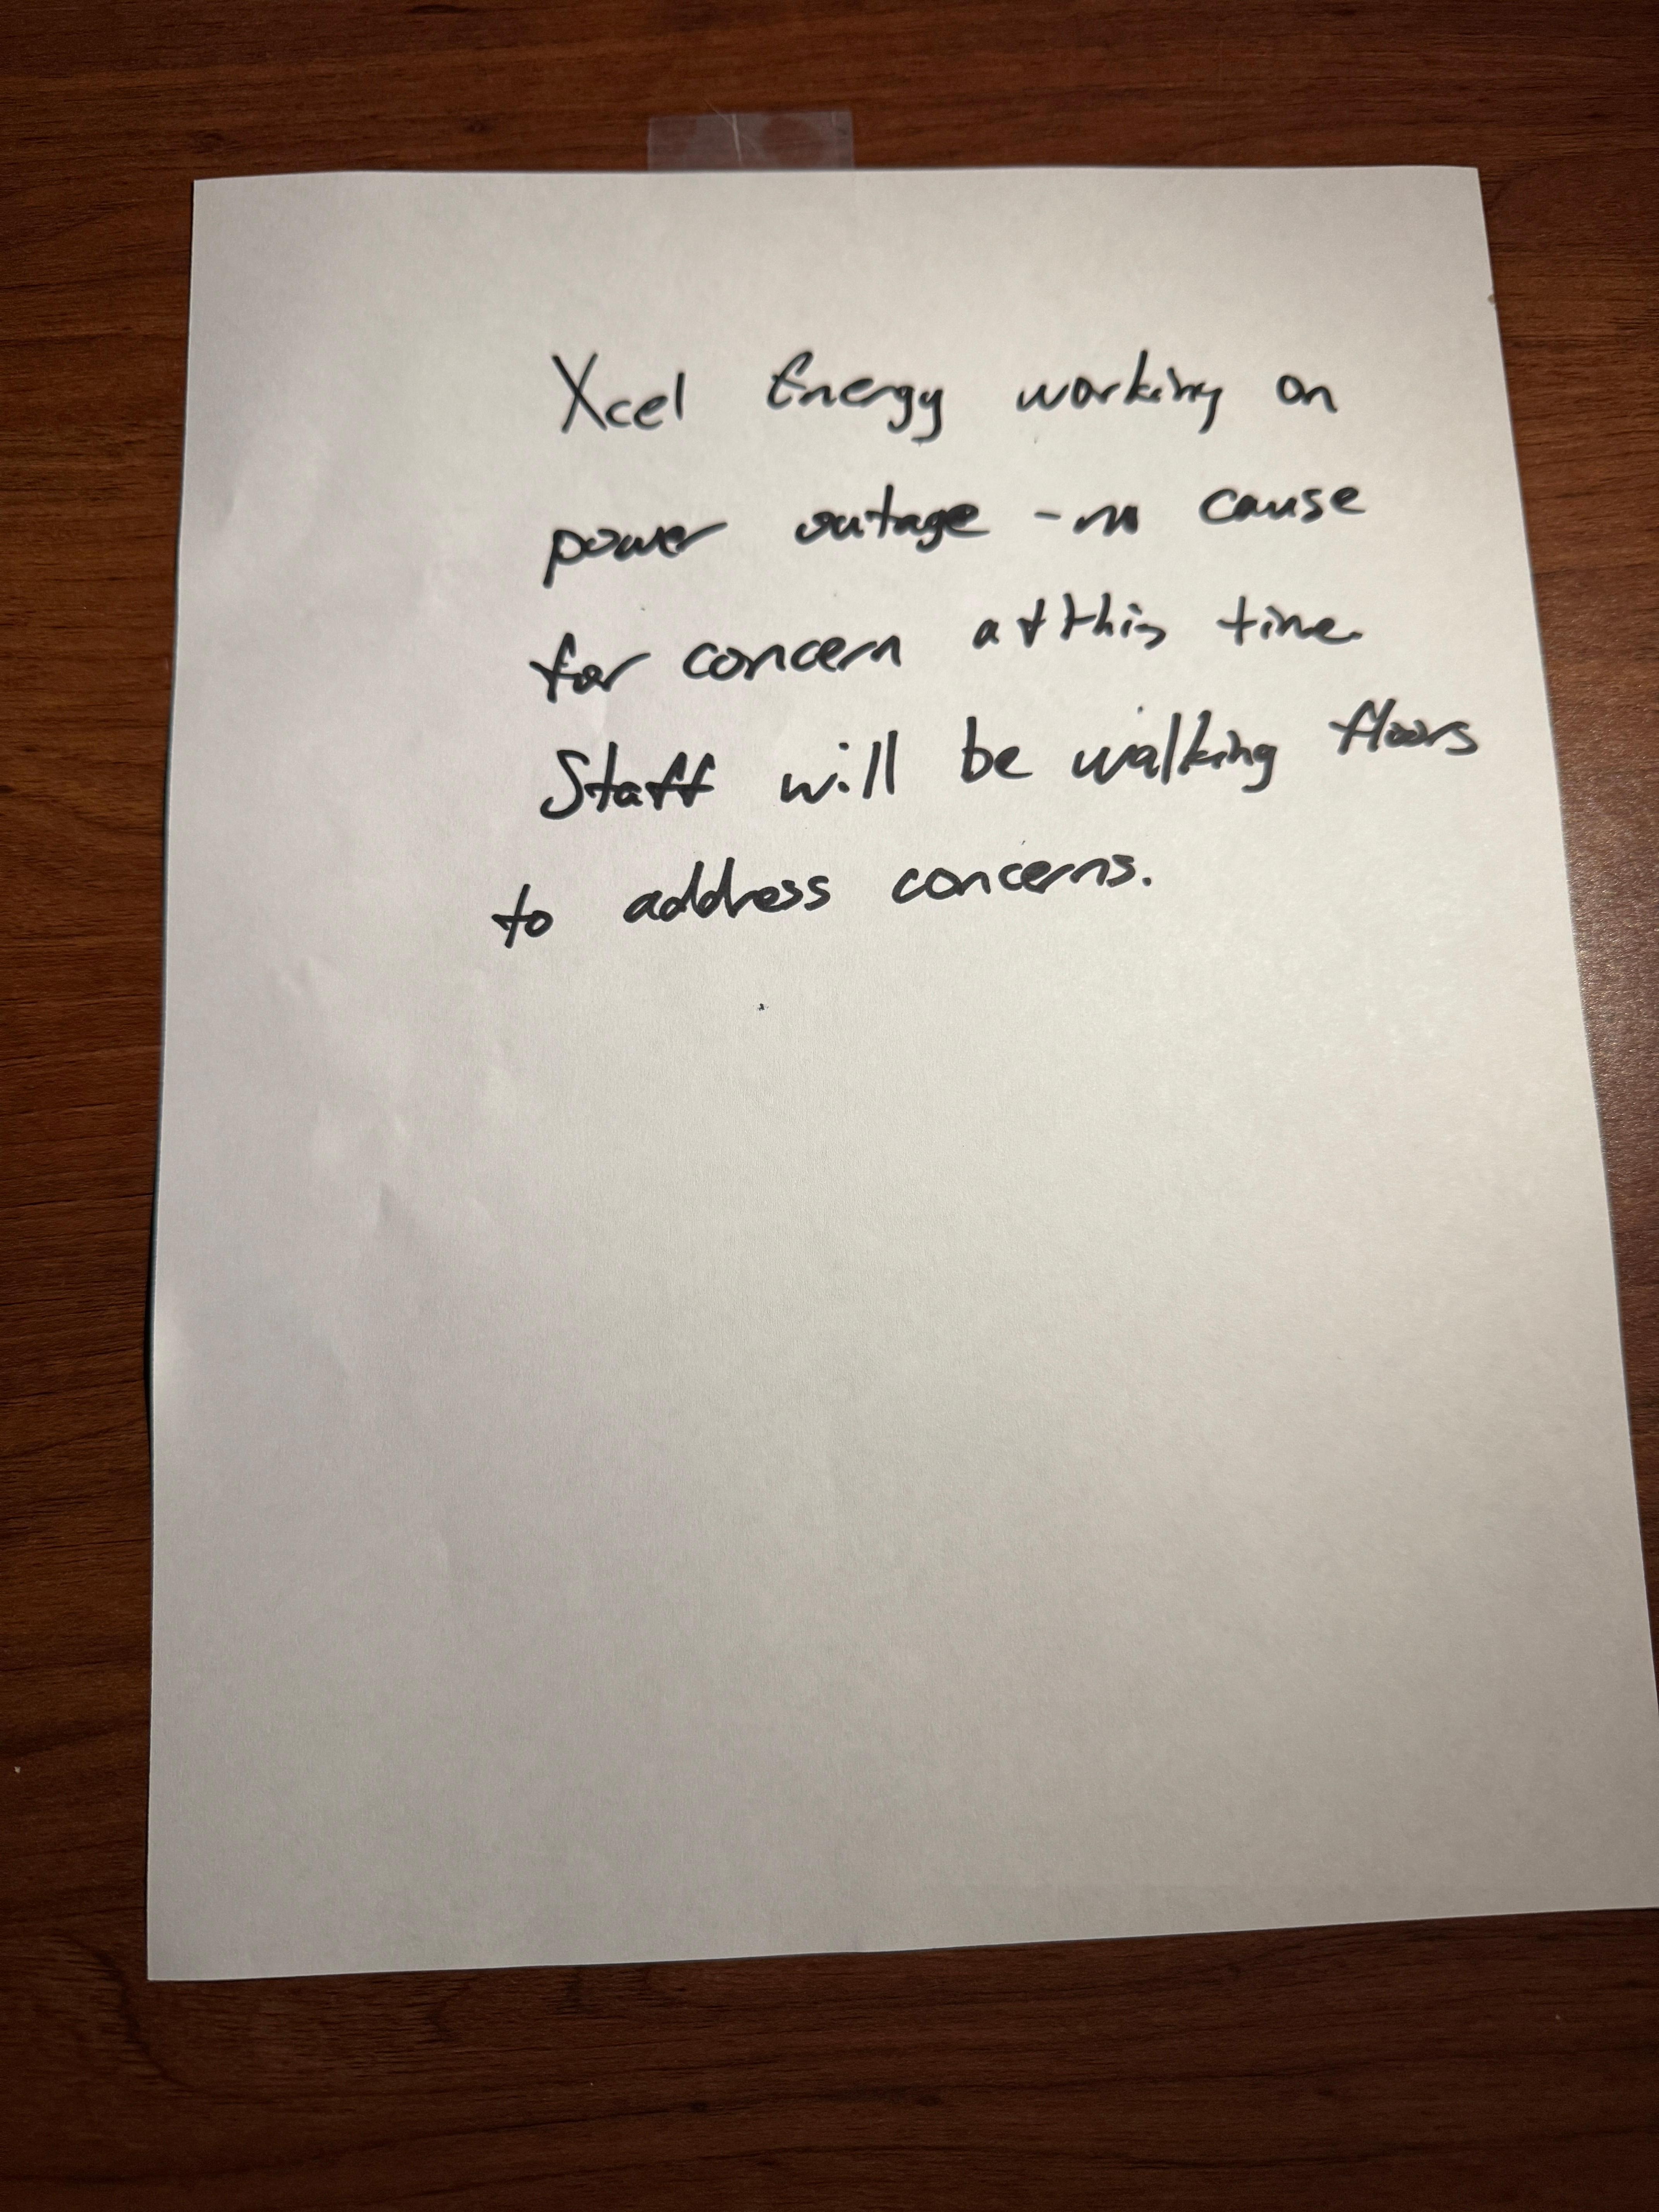 Xcel Energy working on
power outage - no cause
for concern at this time.
Staff will be walking floors
to address concerns.